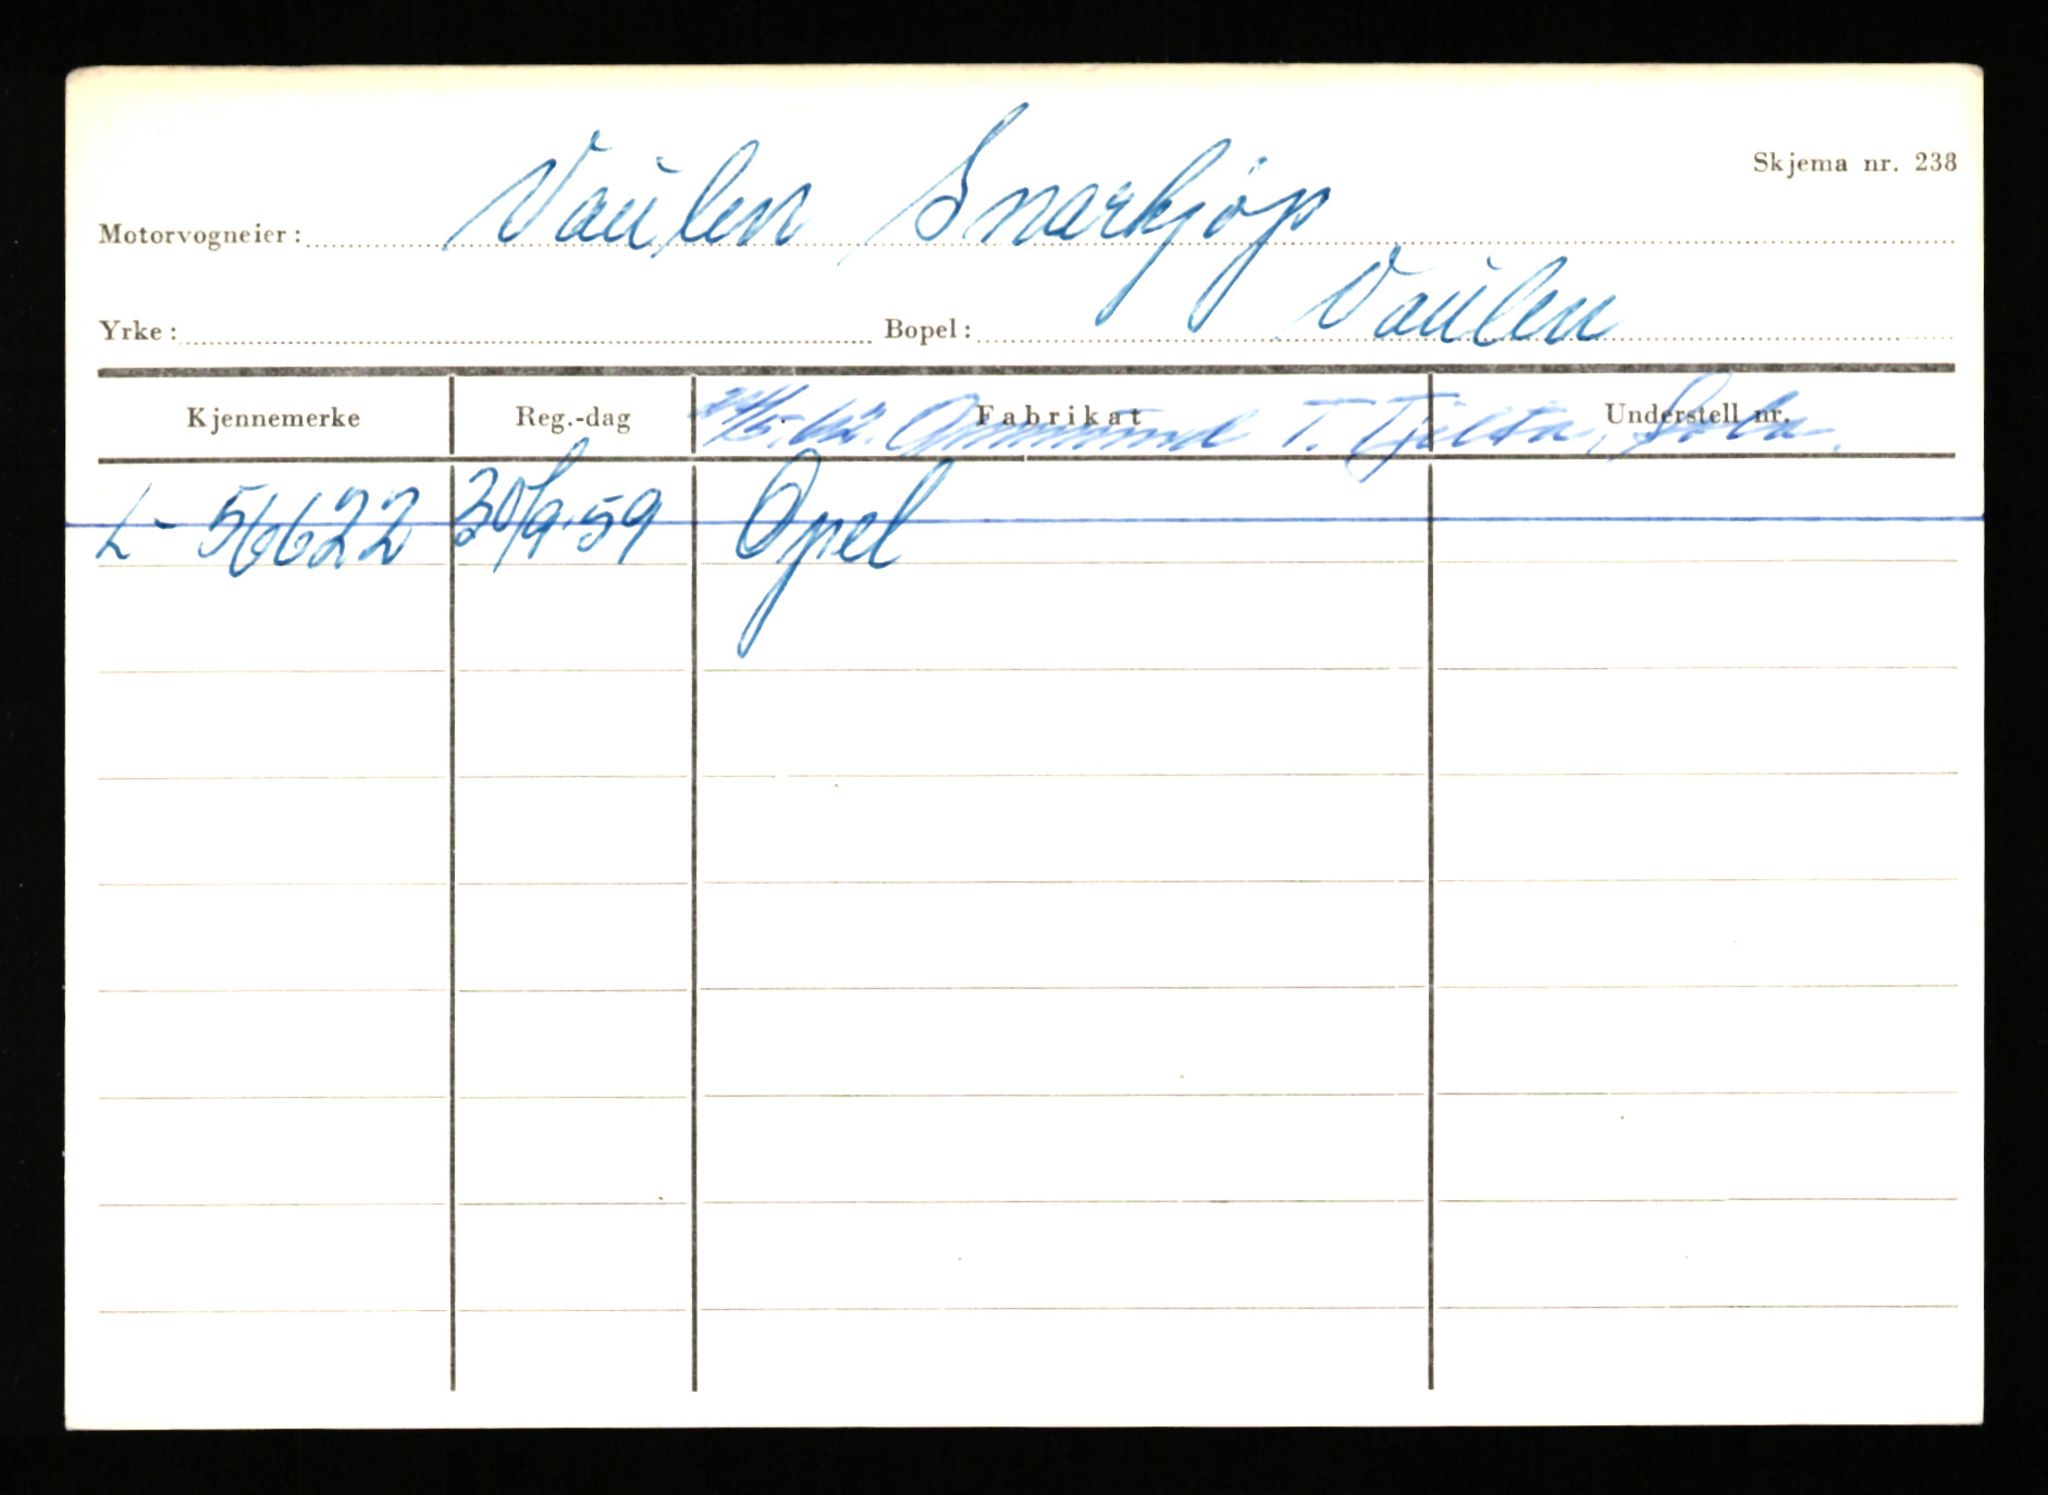 Skjema nr. 238
Motorvogneier: Vaulen Snarkjøp
Yrke: Bopel: Vaulen
Kjennemerke Reg.-dag Fabrikat Understell nr.
T. Tjelta, Sola.
L- 56622 30/9-59 Opel